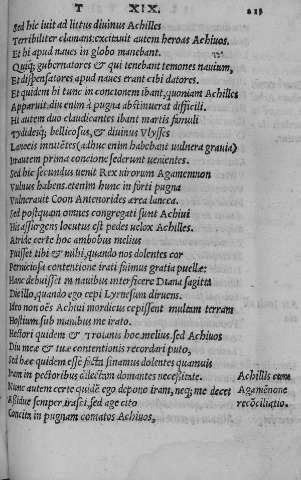 T XIX. 213
Sed hic iuit ad littus diuinus Achilles
Terribiliter clamans: excitauit autem heroas Achiuos.
Et hi apud naues in globo manebant.
Quiq; gubernatores & qui tenebant temones nauium,
Et dispensatores apud naues erant cibi datores.
Et quidem hi tunc in concionem ibant, quoniam Achilles
Apparuit, diu enim à pugna abstinuerat difficili.
Hi autem duo claudicantes ibant martis famuli
Tydidesq; bellicosus, & diuinus Vlysses
Lanceis innitētes (adhuc enim habebant vulnera grauia)
In autem prima concione sederunt uenientes.
Sed hic secundus uenit Rex uirorum Agamemnon
Vulnus habens. etenim hunc in forti pugna
Vulnerauit Coon Antenorides ærea lancea.
Sed postquam omnes congregati sunt Achiui
His assurgens locutus est pedes uelox Achilles.
Atride certe hoc ambobus melius
Fuisset tibi & mihi, quando nos dolentes cor
Perniciosa contentione irati fuimus gratia puellæ:
Hanc debuisset in nauibus interficere Diana sagitta
Die illo, quando ego cepi Lyrnesum diruens.
Ideo non oēs Achiui mordicus cepissent multam terram
Hostium sub manibus me irato.
Hectori quidem & Troianis hoc melius, sed Achiuos
Diu meæ & tuæ contentionis recordari puto,
Sed hæc quidem esse facta sinamus dolentes quamuis
Iram in pectoribus dilectam domantes necessitate.
Nunc autem certe quidē ego depono iram, neq; me decet
Assidue semper irasci, sed age cito
Concita in pugnam comatos Achiuos,
Achillis cum
Agamēnone
recōciliatio.